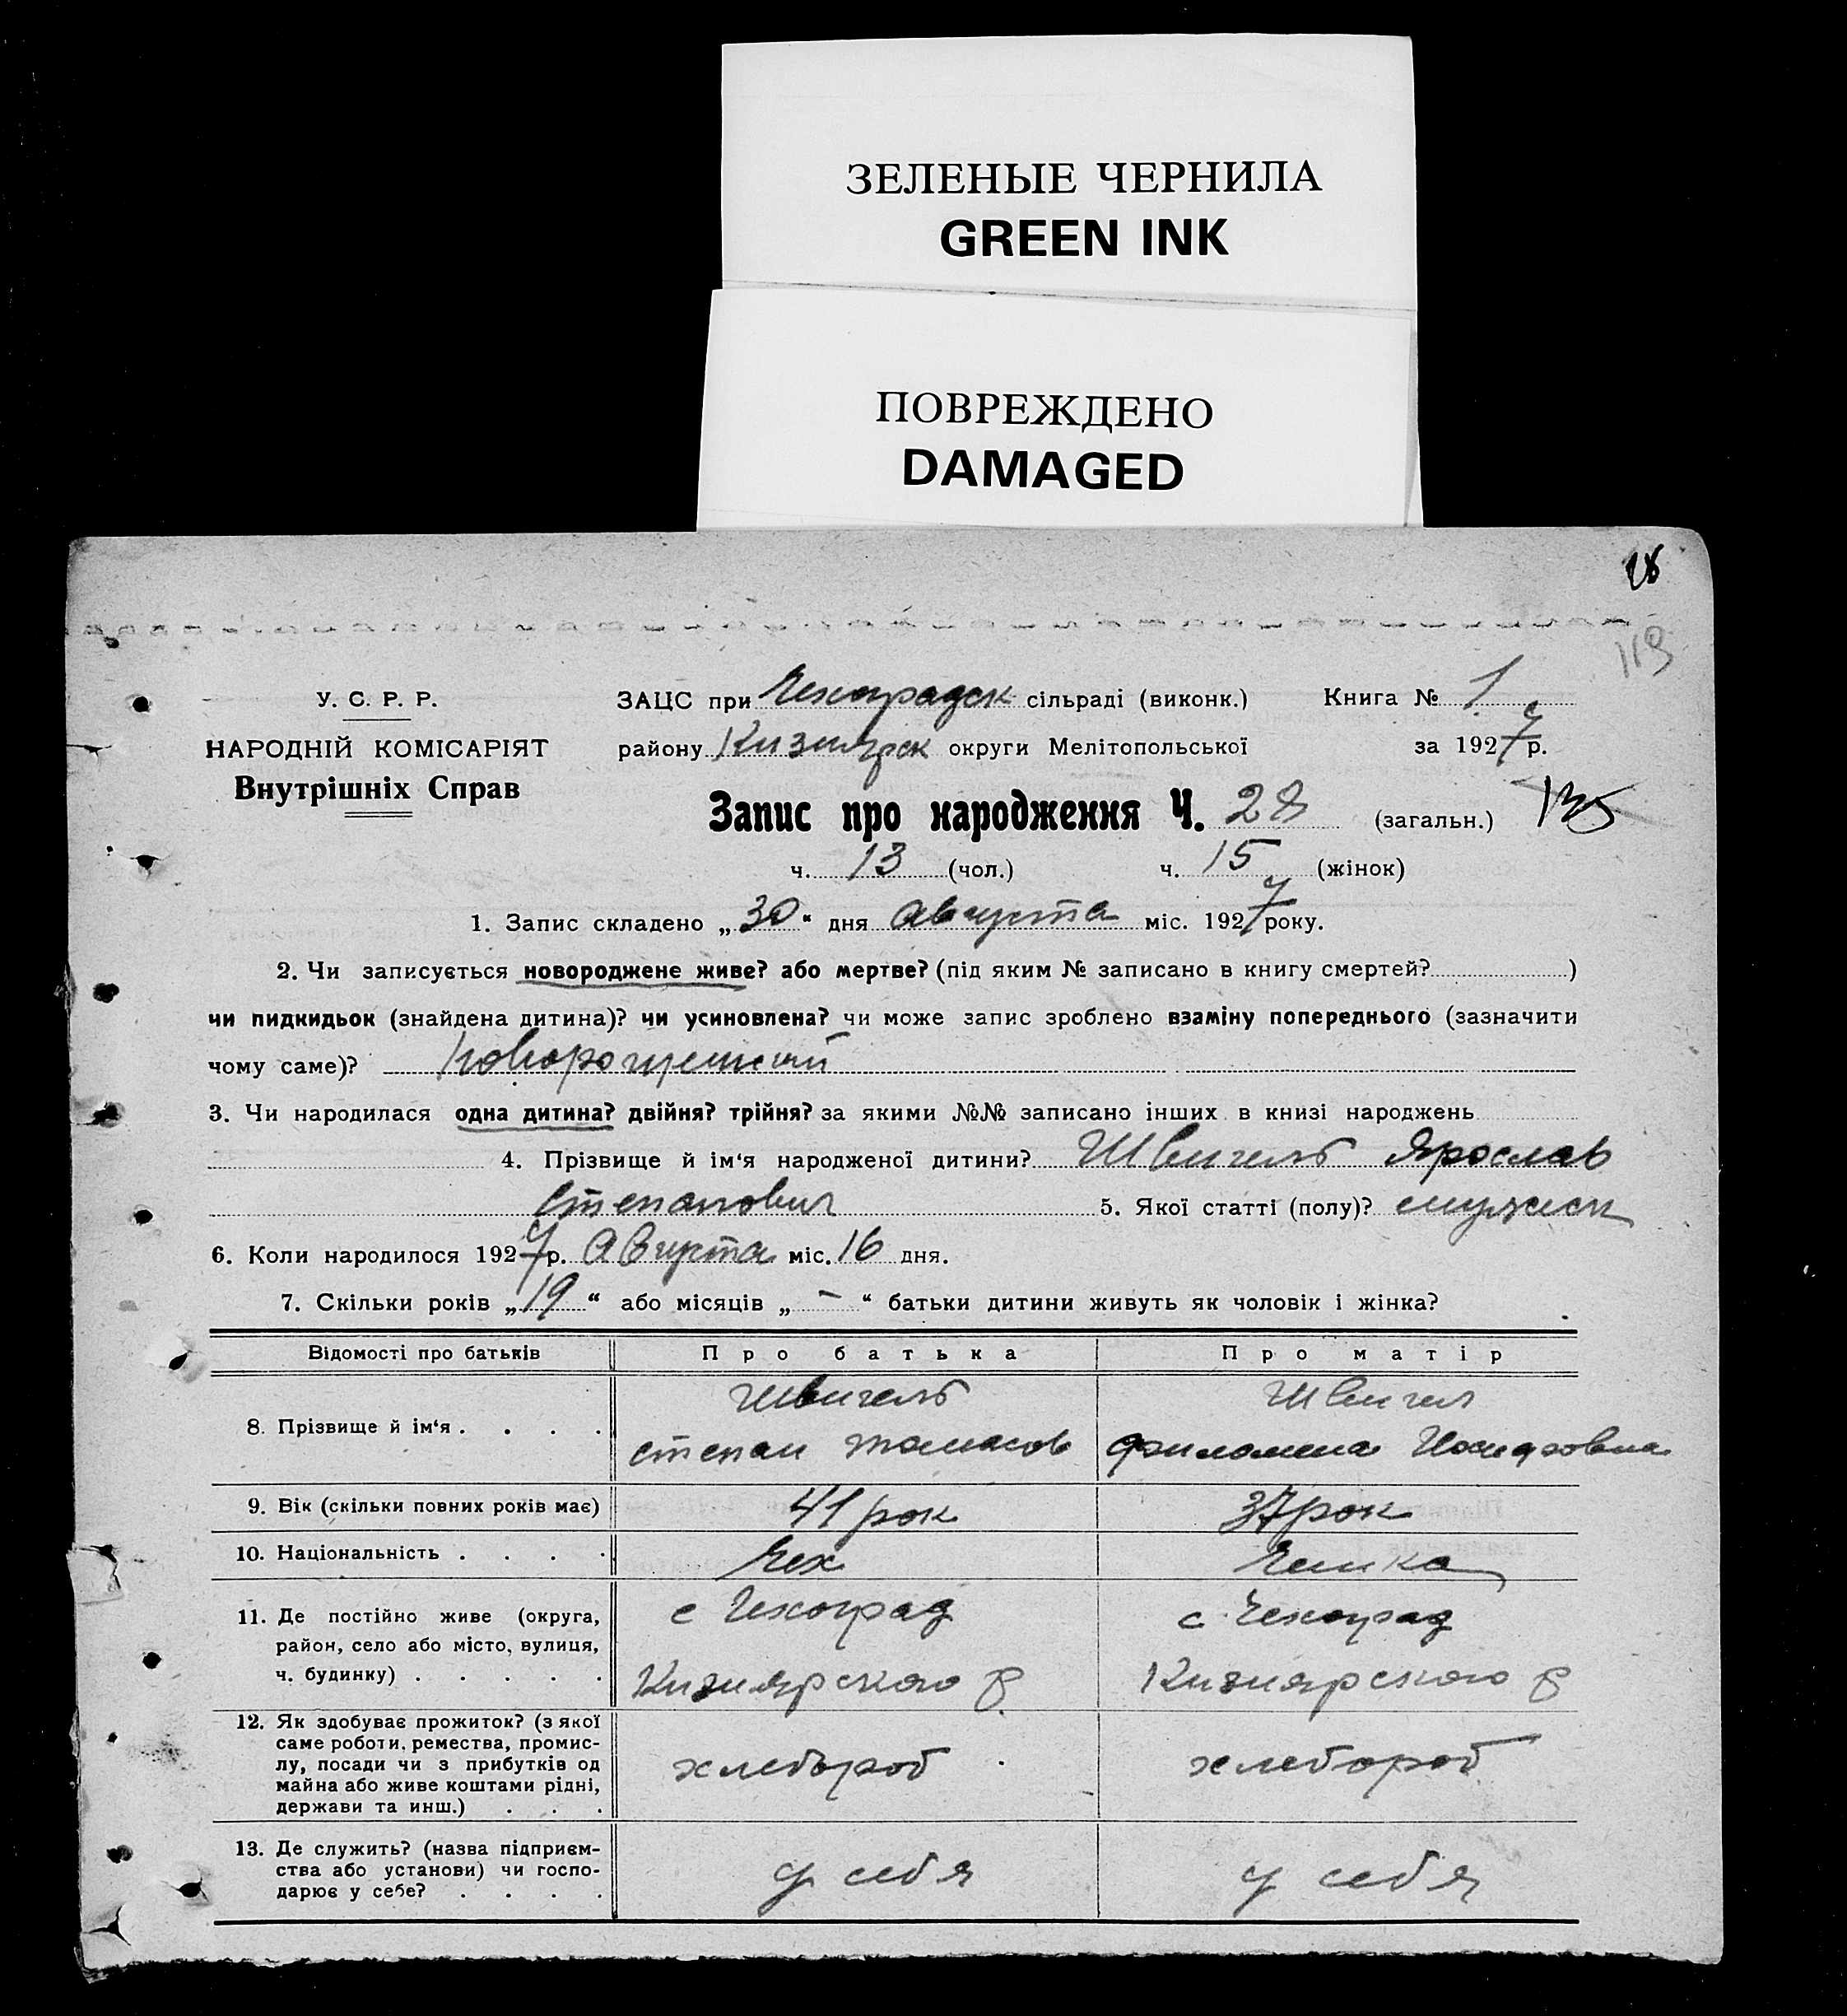 ЗЕЛЕНЫЕ ЧЕРНИЛА
GREEN INK
ПОВРЕЖДЕНО
DAMAGED
28
113
У. С. Р. Р.
НАРОДНІЙ КОМІСАРІЯТ
Внутрішніх Справ
ЗАЦС при Чехоградск сільраді (виконк.) Книга № 1
району Кизиярск округи Мелітопольської за 1927 р.
Запис про народження Ч. 28 (загальн.) 135
ч. 13 (чол.) ч. 15 (жінок)
1. Запис складено „30“ дня Августа міс. 1927 року.
2. Чи записується новороджене живе? або мертве? (під яким № записано в книгу смертей? )
чи пидкидьок (знайдена дитина)? чи усиновлена? чи може запис зроблено взаміну попереднього (зазначити
чому саме)?
3. Чи народилася одна дитина? двійня? трійня? за якими №№ записано інших в книзі народжень
4. Прізвище й ім‘я народженої дитини? Швигель Ярослав
Степанович 5. Якої статті (полу)? мужск
6. Коли народилося 1927 р. Августа міс. 16 дня.
7. Скільки років „19“ або місяців „ – “ батьки дитини живуть як чоловік і жінка?
Відомості про батьків Про батька Про матір
8. Прізвище й ім‘я . . . . Швигель Швигел
Степан Томасов Филомена
9. Вік (скільки повних років має) 41 рок 37 рок
10. Національність . . . . Чех Чешка
11. Де постійно живе (округа, с Чехоград с. Чехоград
район, село або місто, вулиця,
ч. будинку) . . . . . Кизиярского р. Кизиярского р
12. Як здобуває прожиток? (з якої
саме роботи, ремества, промис-
лу, посади чи з прибутків од хлебороб хлебороб
майна або живе коштами рідні,
держави та инш.) . . .
13. Де служить? (назва підприєм-
ства або установи) чи госпо- у себя у себя
дарює у себе? . . . .